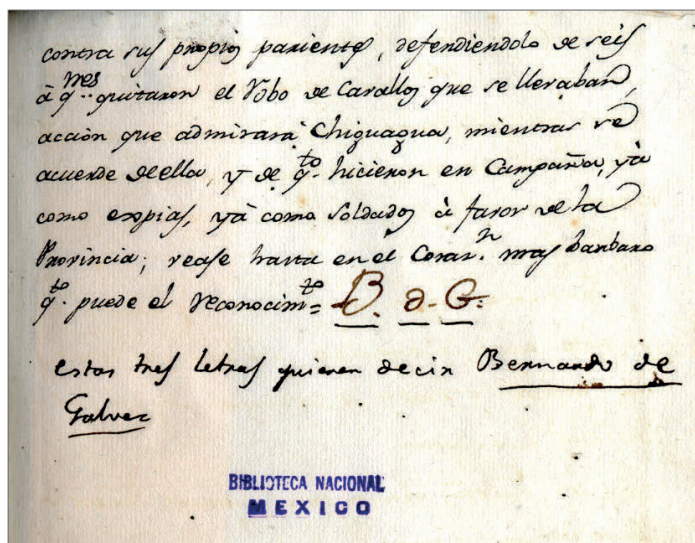 contra sus propios parientes, defendiendolo de seis
à q.nes quitaron el Robo de Cavallos que se llevaban,
acción que admirarà Chiguagua, mientras se
acuerde de ella, y de q.to hicieron en Campaña, yà
como espias, yà como Soldados à favor de la
Provincia; vease hasta en el Coraz.n mas barbaro
q.to puede el reconocim.to = B. d. G.
estas tres letras quieren decir Bernardo de
Galvez
BIBLIOTECA NACIONAL
MEXICO